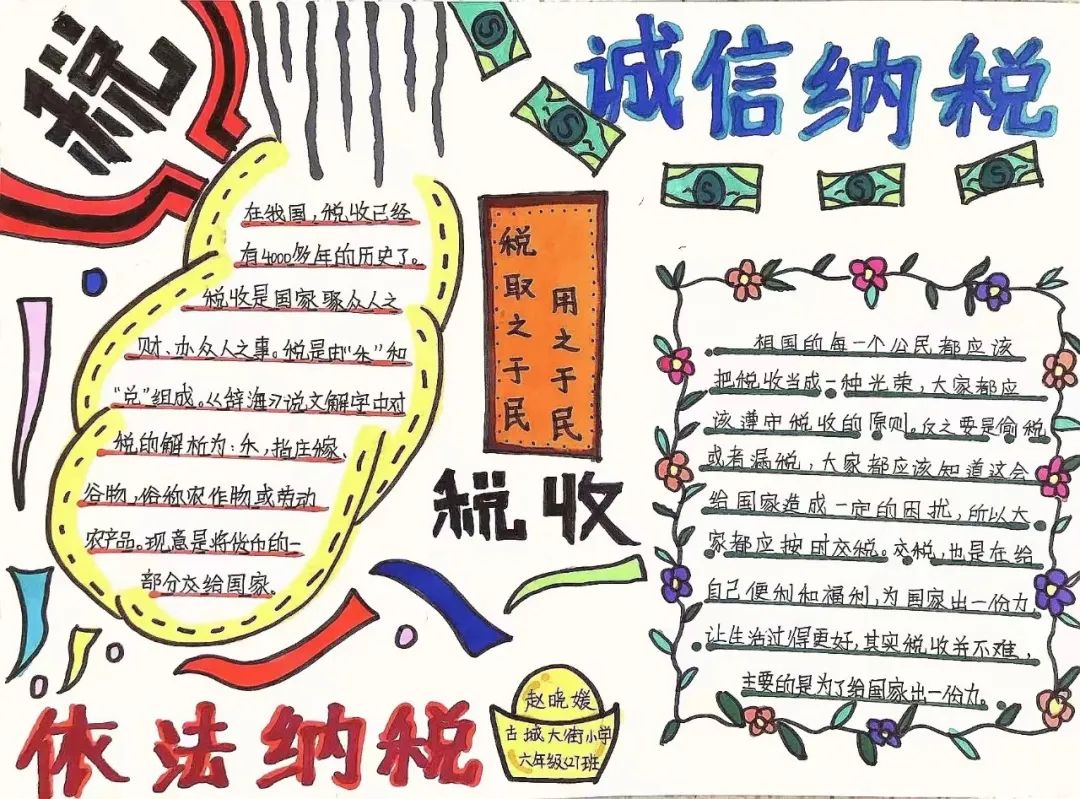 税
诚信纳税
在我国，税收已经
有4000多年的历史了。
税收是国家聚众人之
财、办众人之事。税是由“禾”和
“兑”组成。《辞海》说文解字中对
税的解析为：禾，指庄稼、
谷物，俗称农作物或劳动
农产品。现意是将货币的一
部分交给国家。
税取之于民
用之于民
税收
祖国的每一个公民都应该
把税收当成一种光荣，大家都应
该遵守税收的原则。反之要是偷税
或者漏税，大家都应该知道这会
给国家造成一定的困扰，所以大
家都应按时交税。交税，也是在给
自己便利和福利，为国家出一份力，
让生活过得更好，其实税收并不难，
主要的是为了给国家出一份力。
依法纳税
赵晓媛
古城大街小学
六年级(2)班